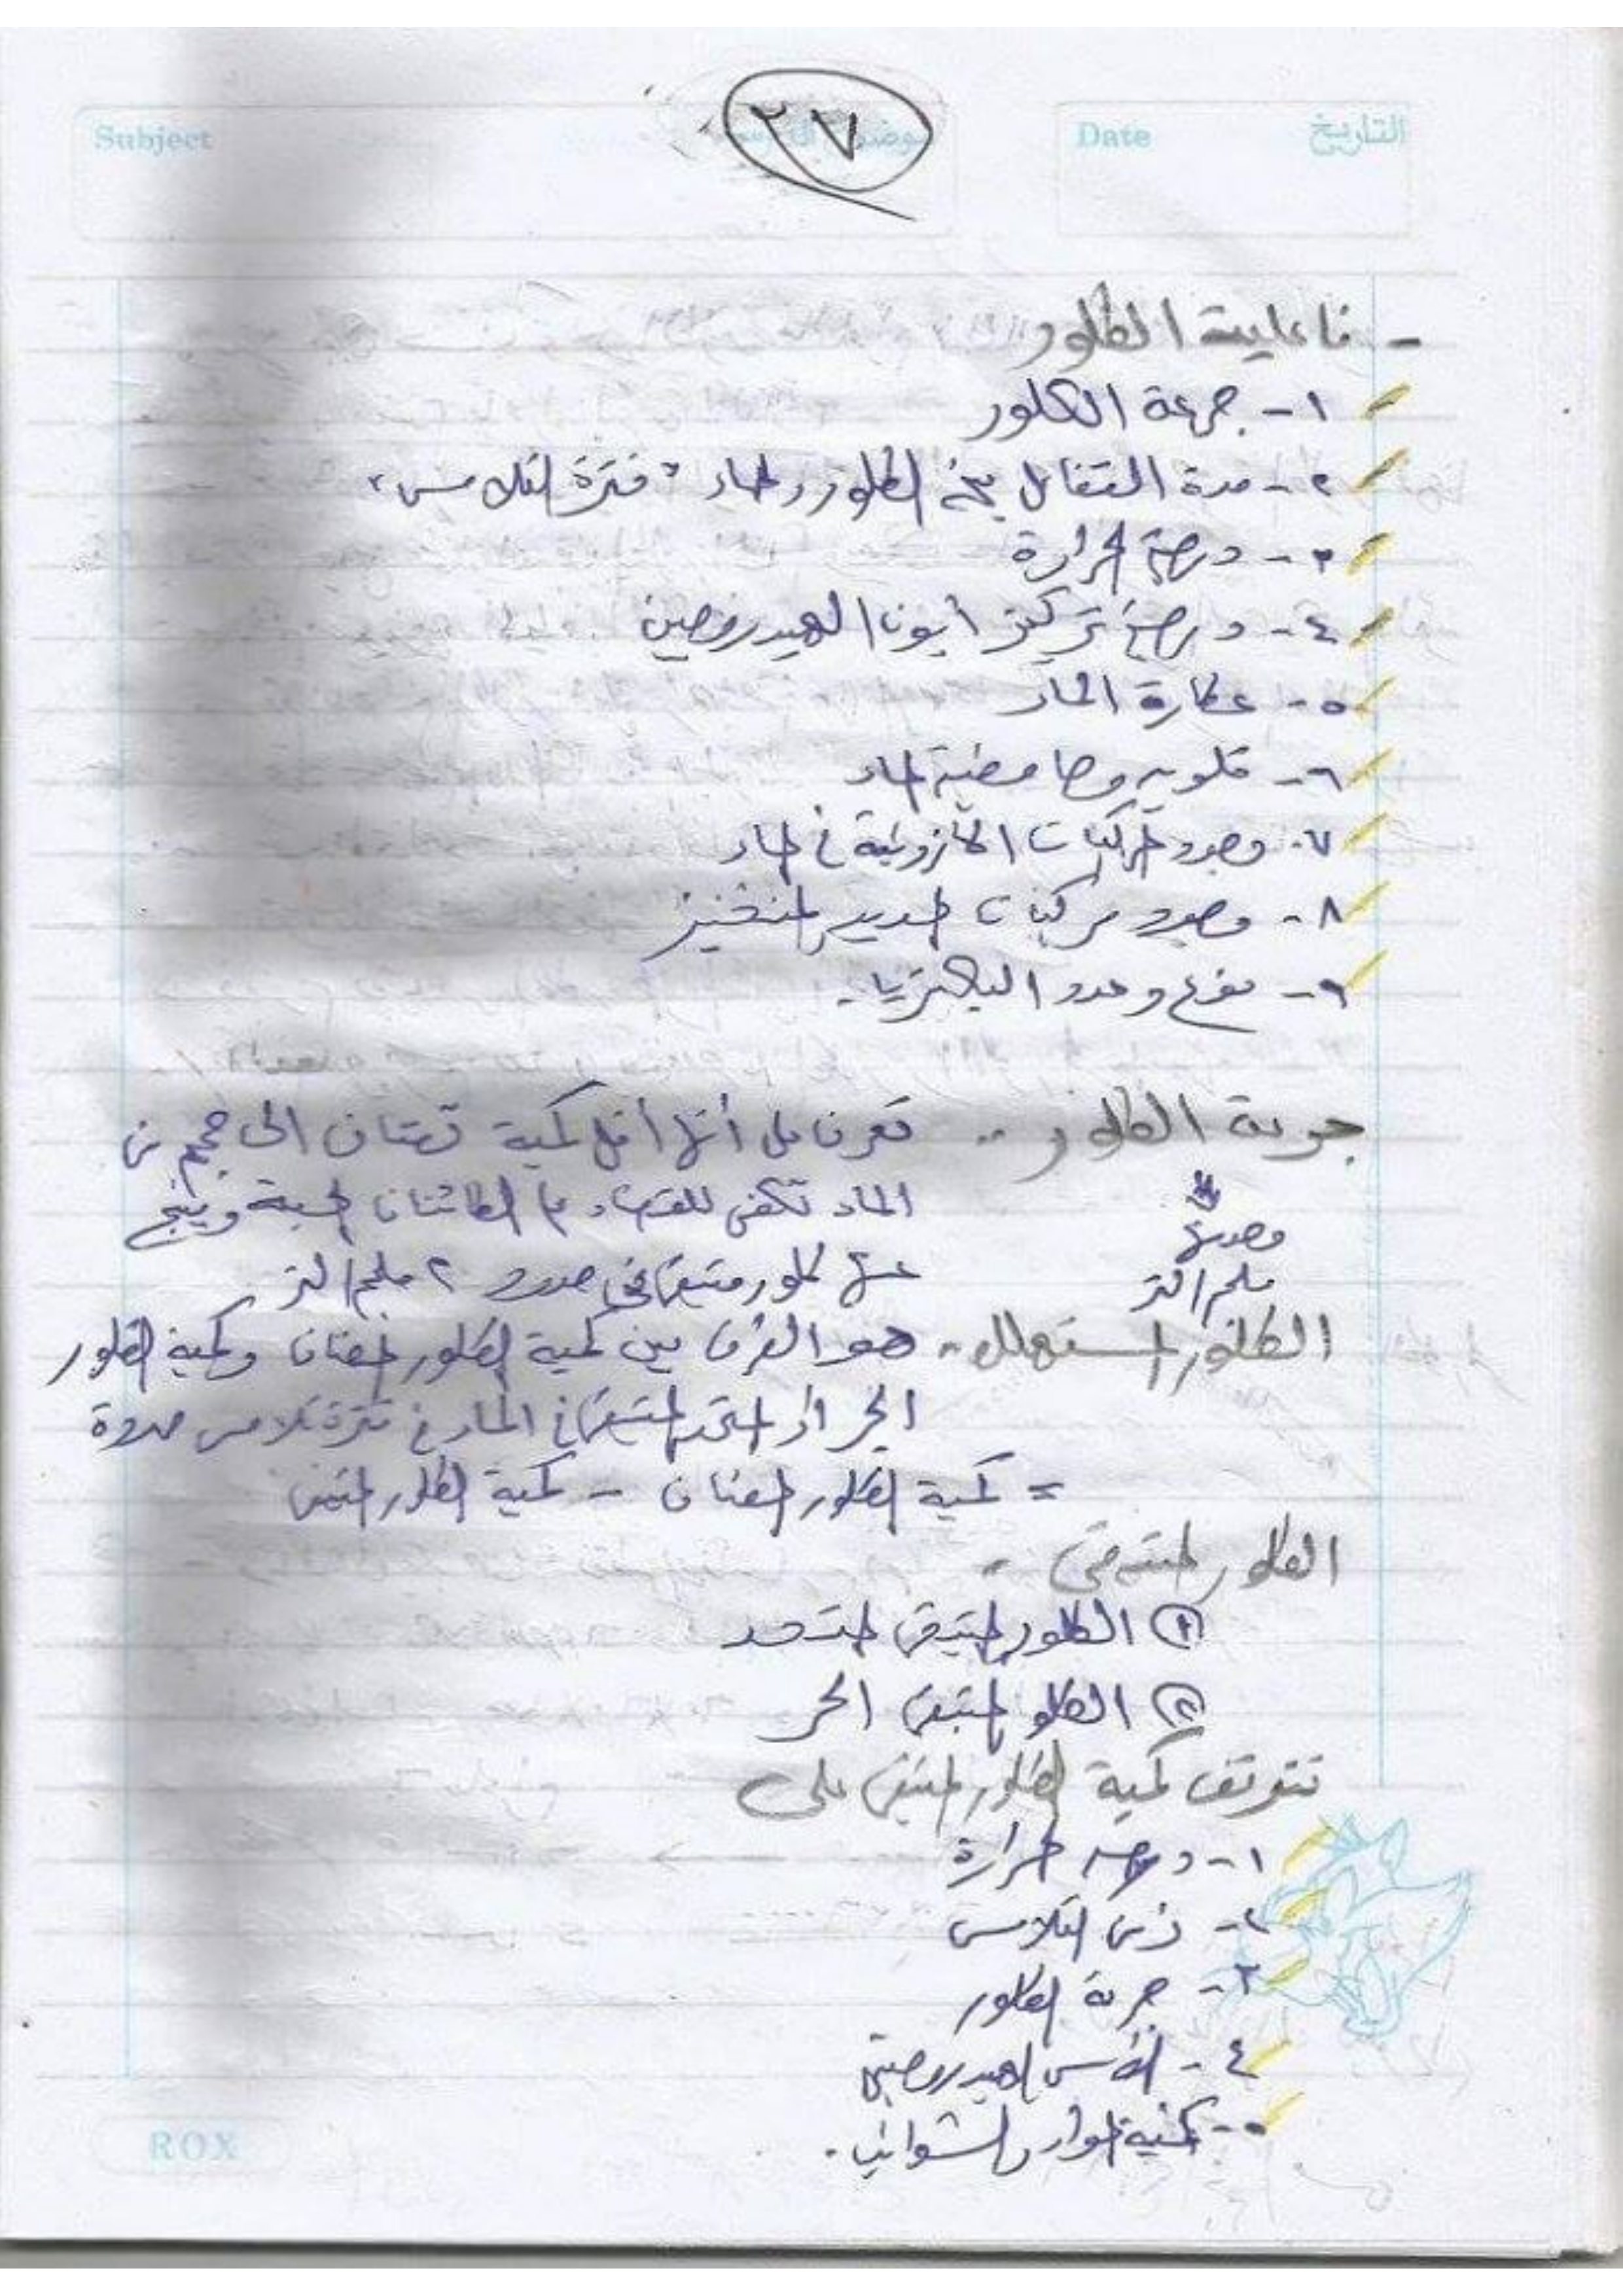 ٢٧
Subject
Date التاريخ
- فاعلية الكلور
١- جرعة الكلور
٢- مدة التفاعل بين الكلور والماء "فترة التلامس"
٣- درجة الحرارة
٤- درجة تركيز أيون الهيدروجين
٥- عكارة الماء
٦- قلوية وحامضية الماء
٧- وجود المركبات الآزوتية في الماء
٨- وجود مركبات الحديد والمنجنيز
٩- نوع وعدد البكتريا.
جرعة الكلور .. تعرف على أنها أقل كمية تضاف الى حجم من
الماء تكفى للقضاء على الكائنات الحية وينتج
وحدتها
عنها كلور متبقى في حدود ٢ ملجم/لتر
ملجم/لتر
الكلور المستهلك .. هو الفرق بين كمية الكلور المضاف وكمية الكلور
الحر أو المتحد المتبقى في الماء في فترة تلامس محددة
= كمية الكلور المضاف - كمية الكلور المتبقى
الكلور المتبقى -
① الكلور المتبقى المتحد
② الكلور المتبقى الحر
تتوقف كمية الكلور المتبقى على
١- درجة الحرارة
٢- زمن التلامس
٣- جرعة الكلور
٤- الأس الهيدروجينى
٥- كمية المواد والشوائب.
ROX